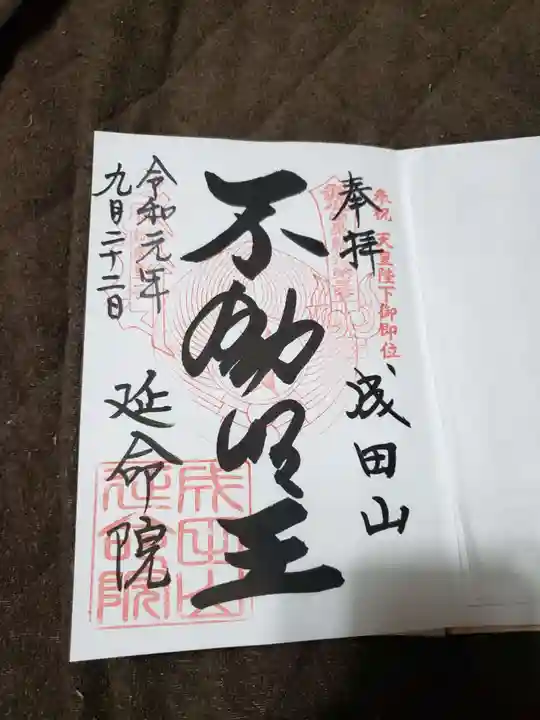 奉祝 天皇陛下御即位
奉拝
成田山
不動明王
令和元年
九月二十二日
延命院
成田山
延命院